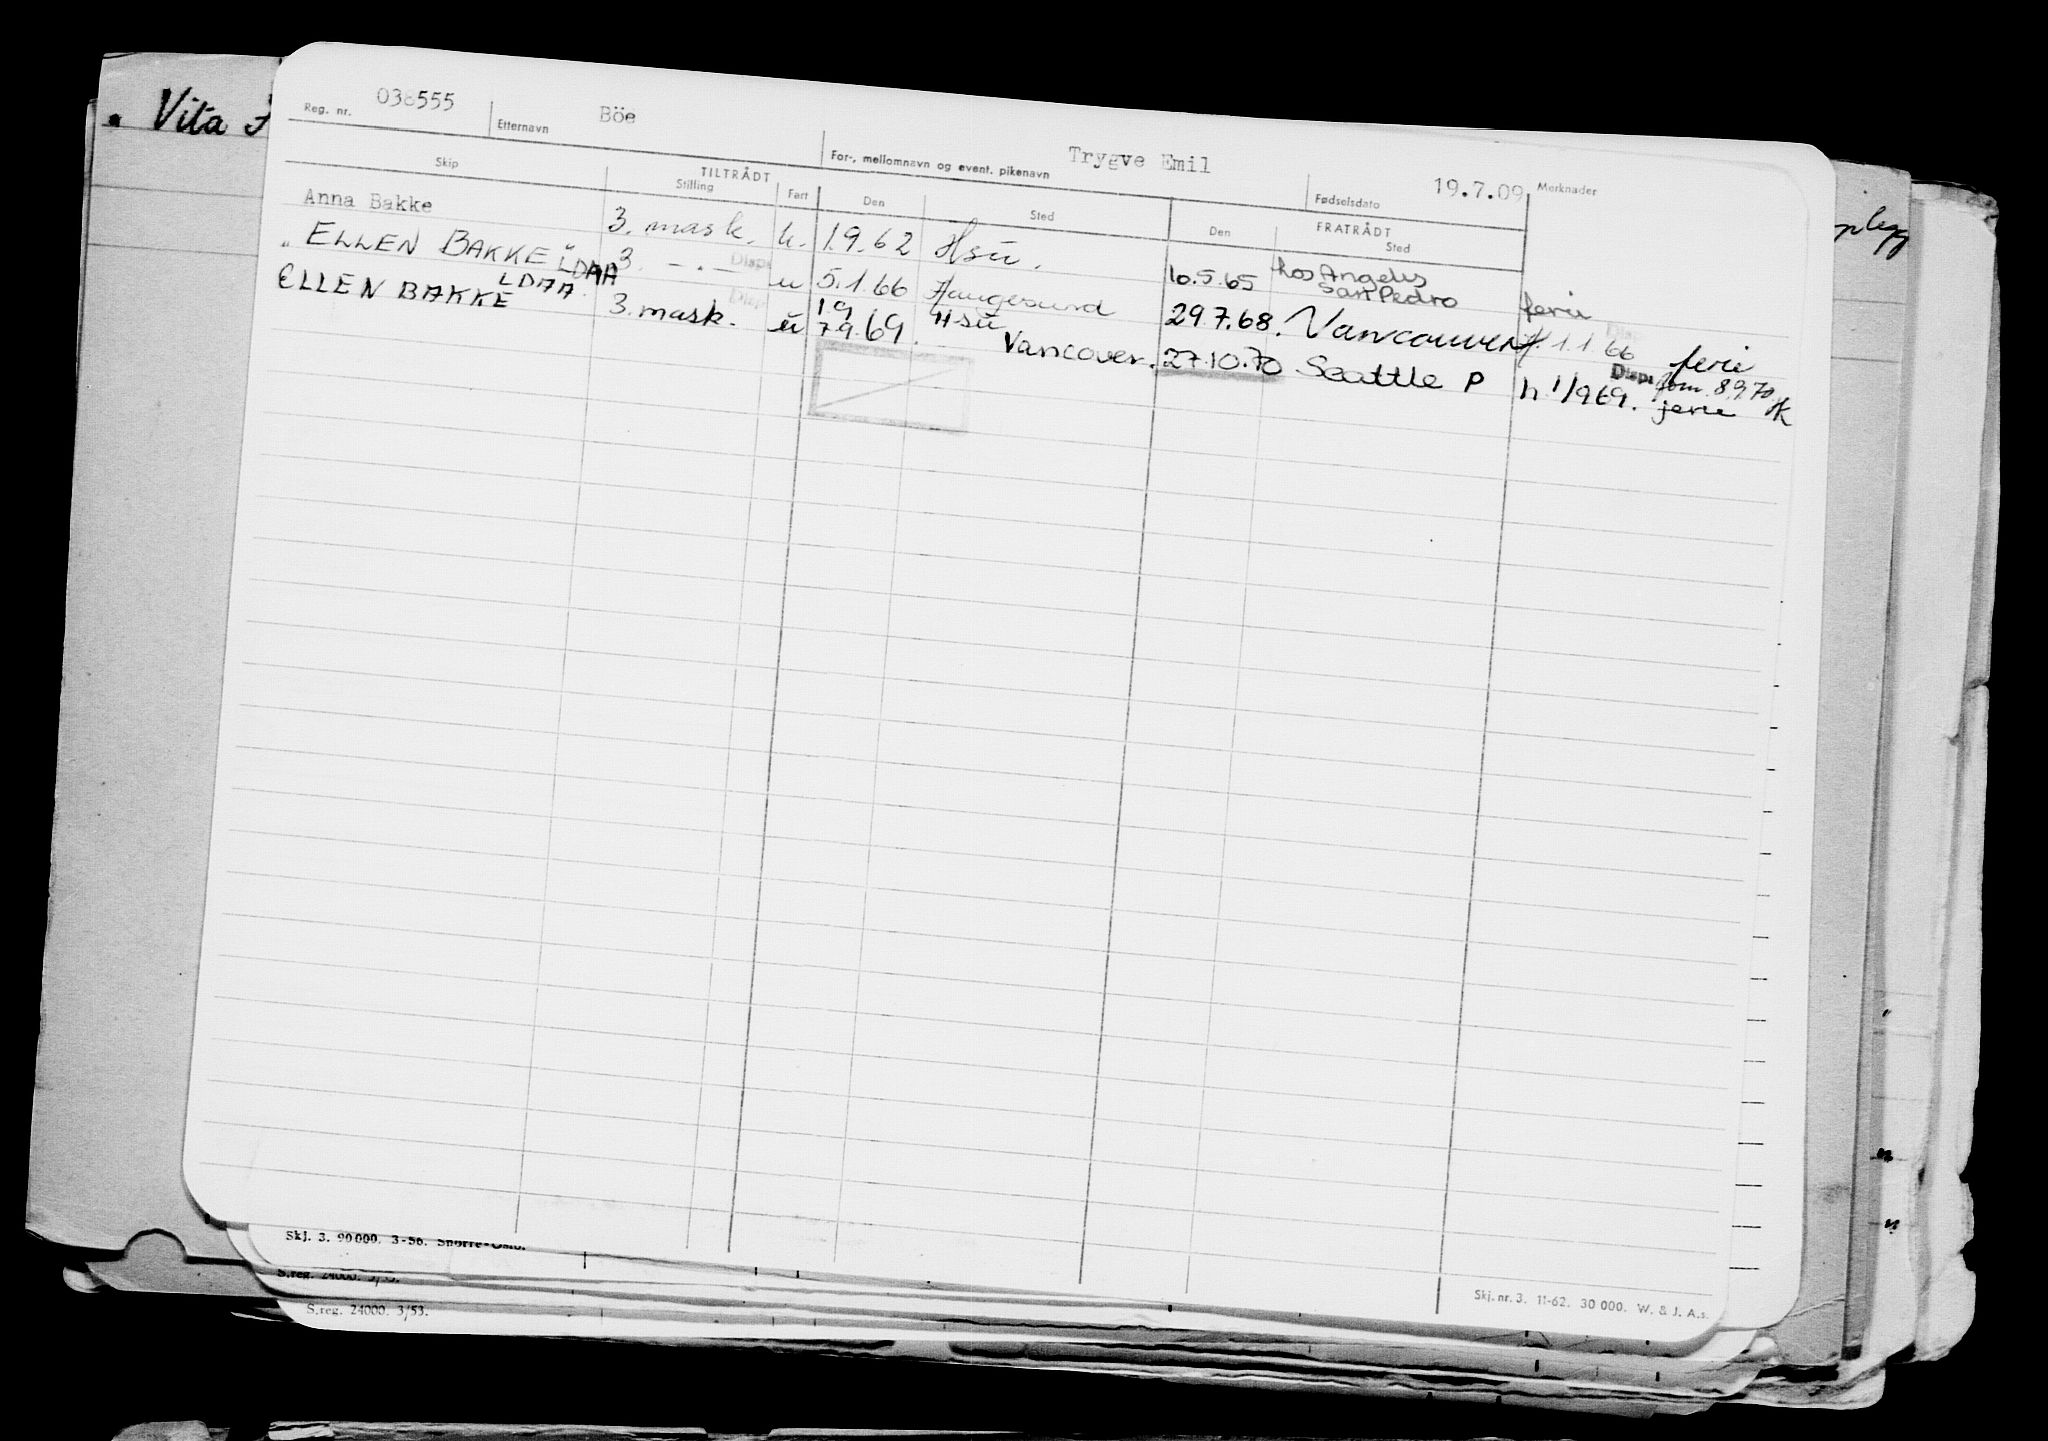 Vita
Reg. nr. 038555 Etternavn Böe For-, mellomnavn og event. pikenavn Trygve Emil Fødselsdato 19.7.09 Merknader
Skip TILTRÅDT FRATRÅDT
Stilling Fart Den Sted Den Sted
Anna Bakke 3. mask. u. 1.9.62 Hsu. 10.5.65 Los Angeles San Pedro ferie
"ELLEN BAKKE" LDAA 3. -.- Disp. u 5.1.66 Haugesund 29.7.68. Vancouver 1.1.66 ferie
ELLEN BAKKE LDAA 3. mask. Disp u 1.9 7.9.69. Hsu Vancover. 27.10.70 Seattle P h 1/9 69. Disp. fom. 8.9.70 ferie
Skj. 3. 90000. 3-56. Snorre-Oslo.
S.reg. 24000. 3/53.
S.reg. 24000. 3/53.
Skj. nr. 3. 11-62. 30 000. W. & J. A.s.